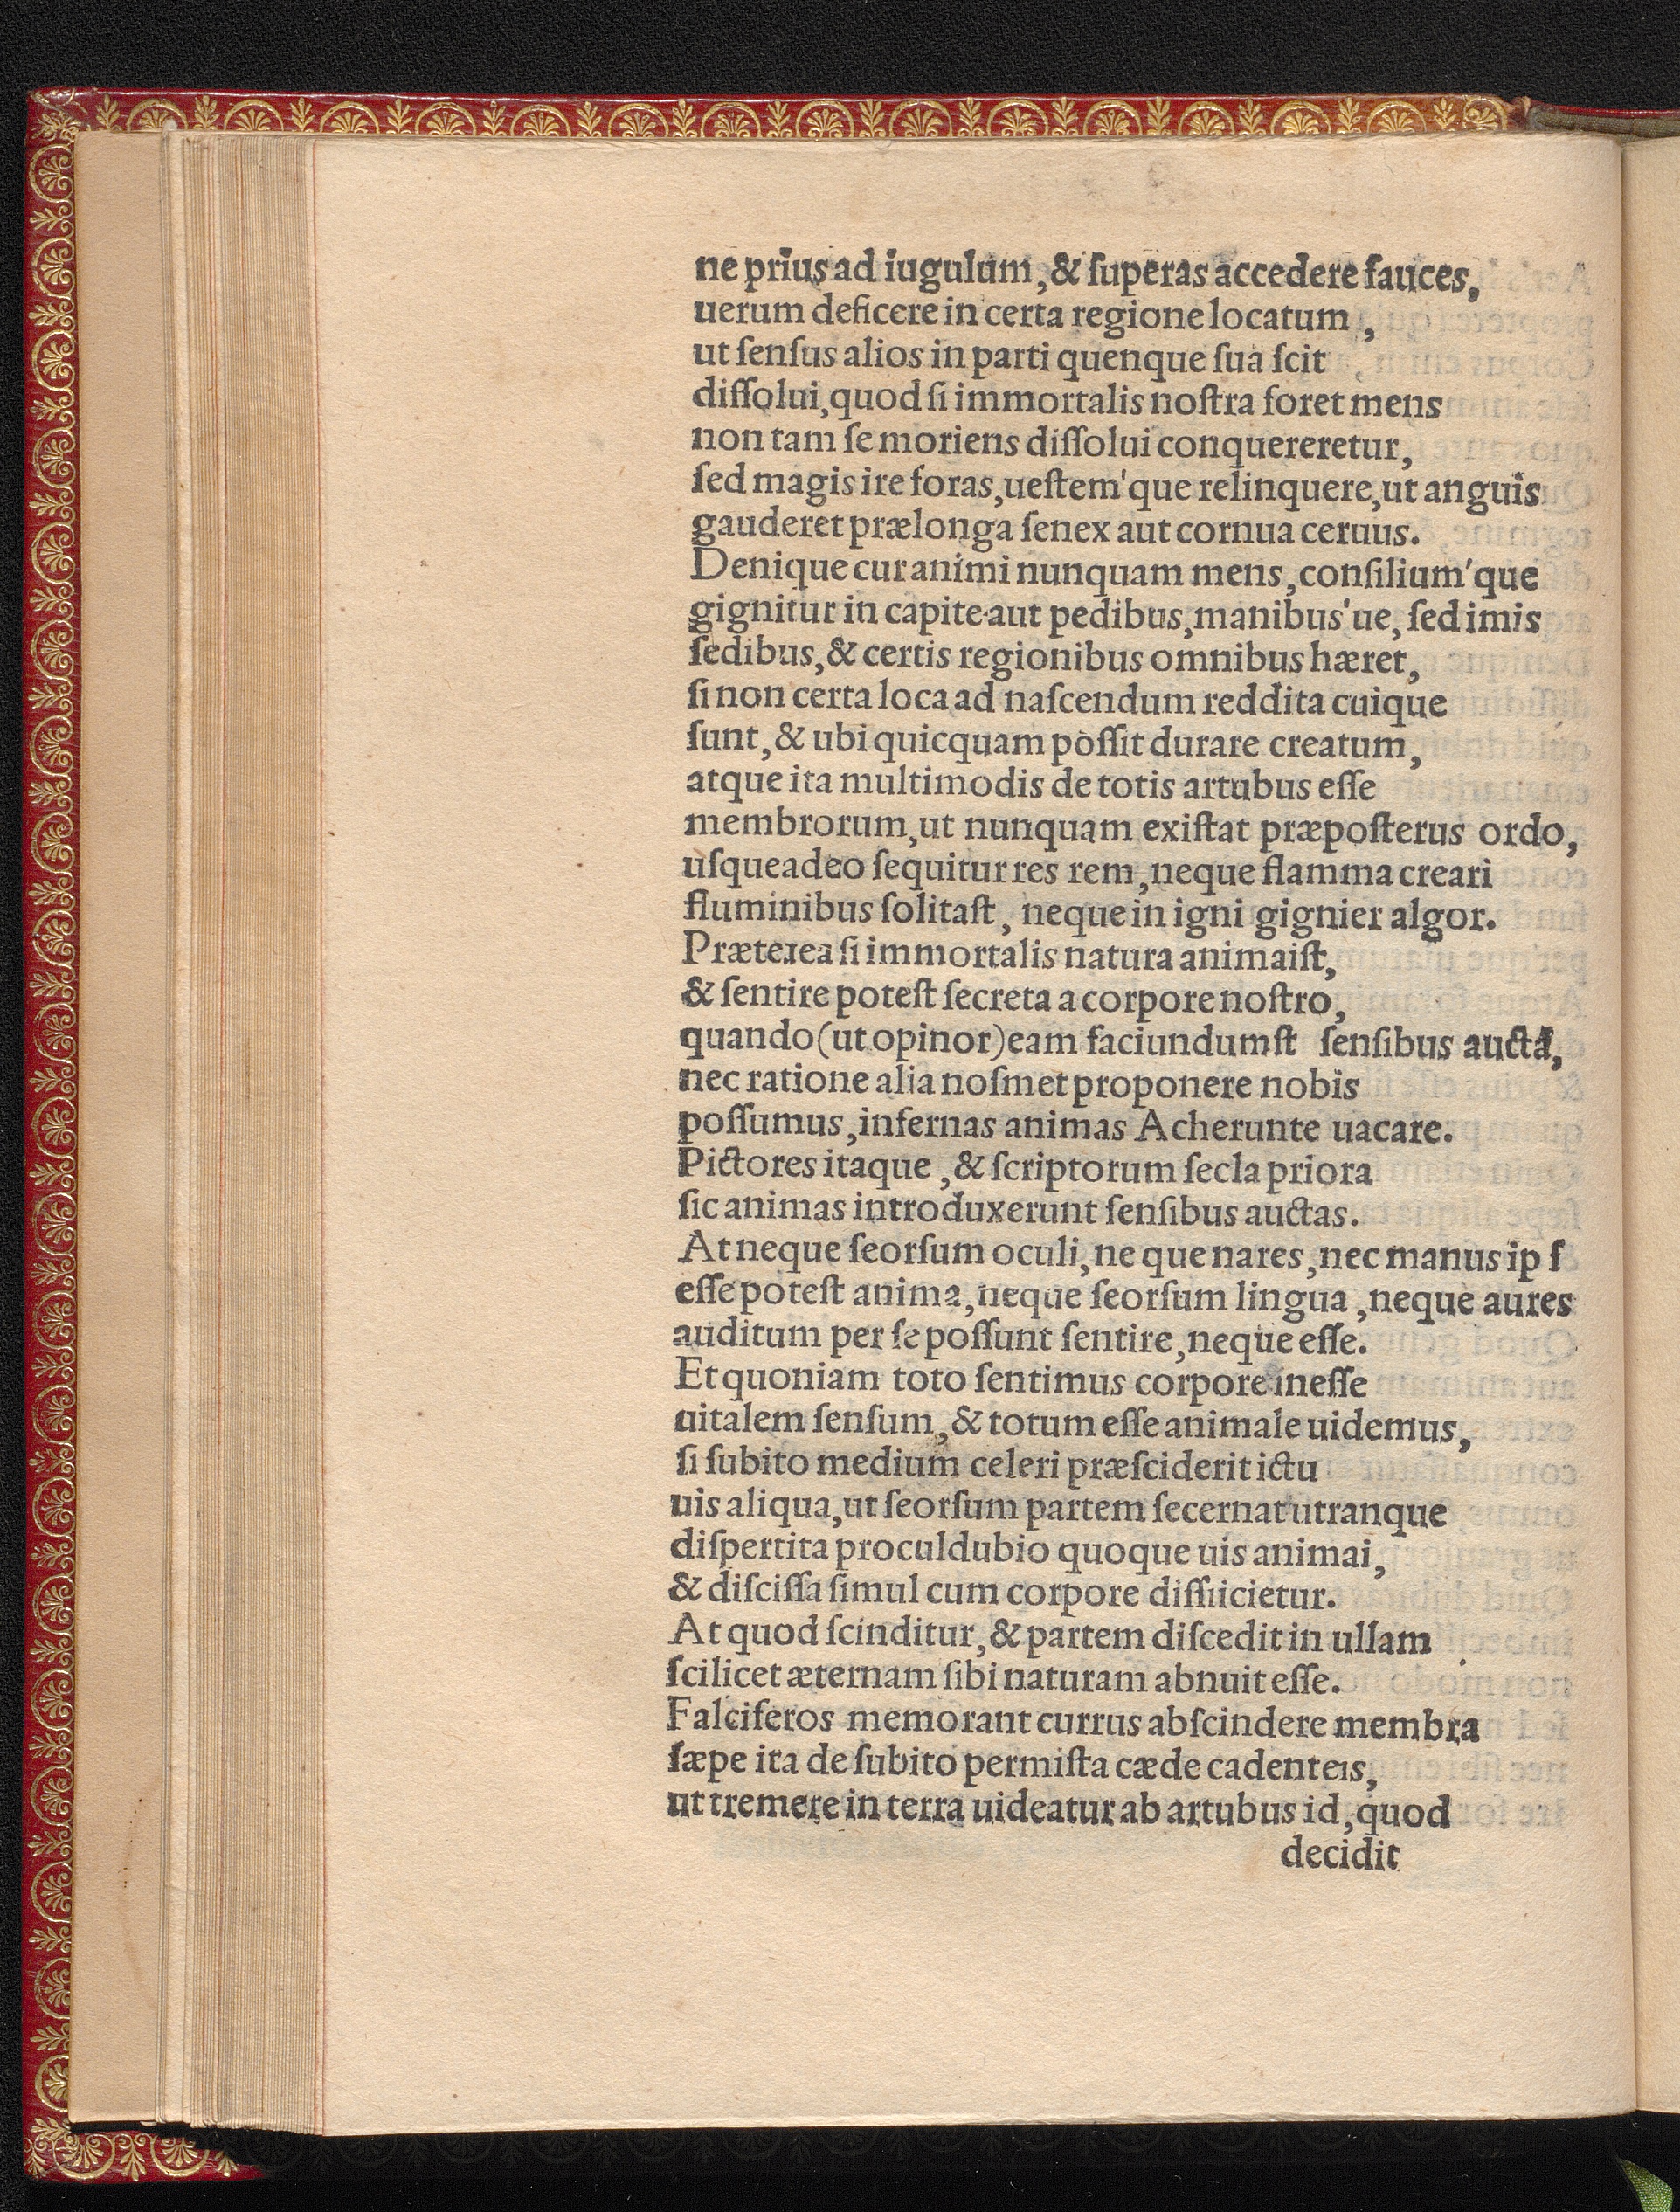 ne prius ad iugulum, & ſuperas accedere fauces,
uerum deficere in certa regione locatum,
ut ſenſus alios in parti quenque ſua ſcit
diſſolui, quod ſi immortalis noſtra foret mens
non tam ſe moriens diſſolui conquereretur,
ſed magis ire foras, ueſtem'que relinquere, ut anguis
gauderet prælonga ſenex aut cornua ceruus.
Denique cur animi nunquam mens, conſilium'que
gignitur in capite aut pedibus, manibus'ue, ſed imis
ſedibus, & certis regionibus omnibus hæret,
ſi non certa loca ad naſcendum reddita cuique
ſunt, & ubi quicquam poſſit durare creatum,
atque ita multimodis de totis artubus eſſe
membrorum, ut nunquam exiſtat præpoſterus ordo,
uſqueadeo ſequitur res rem, neque flamma creari
fluminibus ſolitaſt, neque in igni gignier algor.
Præterea ſi immortalis natura animaiſt,
& ſentire poteſt ſecreta a corpore noſtro,
quando (ut opinor) eam faciundumſt ſenſibus auctã,
nec ratione alia noſmet proponere nobis
poſſumus, infernas animas Acherunte uacare.
Pictores itaque, & ſcriptorum ſecla priora
ſic animas introduxerunt ſenſibus auctas.
At neque ſeorſum oculi, ne que nares, nec manus ip ſ
eſſe poteſt anima, neque ſeorſum lingua, neque aures
auditum per ſe poſſunt ſentire, neque eſſe.
Et quoniam toto ſentimus corpore ineſſe
uitalem ſenſum, & totum eſſe animale uidemus,
ſi ſubito medium celeri præſciderit ictu
uis aliqua, ut ſeorſum partem ſecernat utranque
diſpertita proculdubio quoque uis animai,
& diſciſſa ſimul cum corpore diſſiicietur.
At quod ſcinditur, & partem diſcedit in ullam
ſcilicet æternam ſibi naturam abnuit eſſe.
Falciferos memorant currus abſcindere membra
ſæpe ita de ſubito permiſta cæde cadenteis,
ut tremere in terra uideatur ab artubus id, quod
decidit